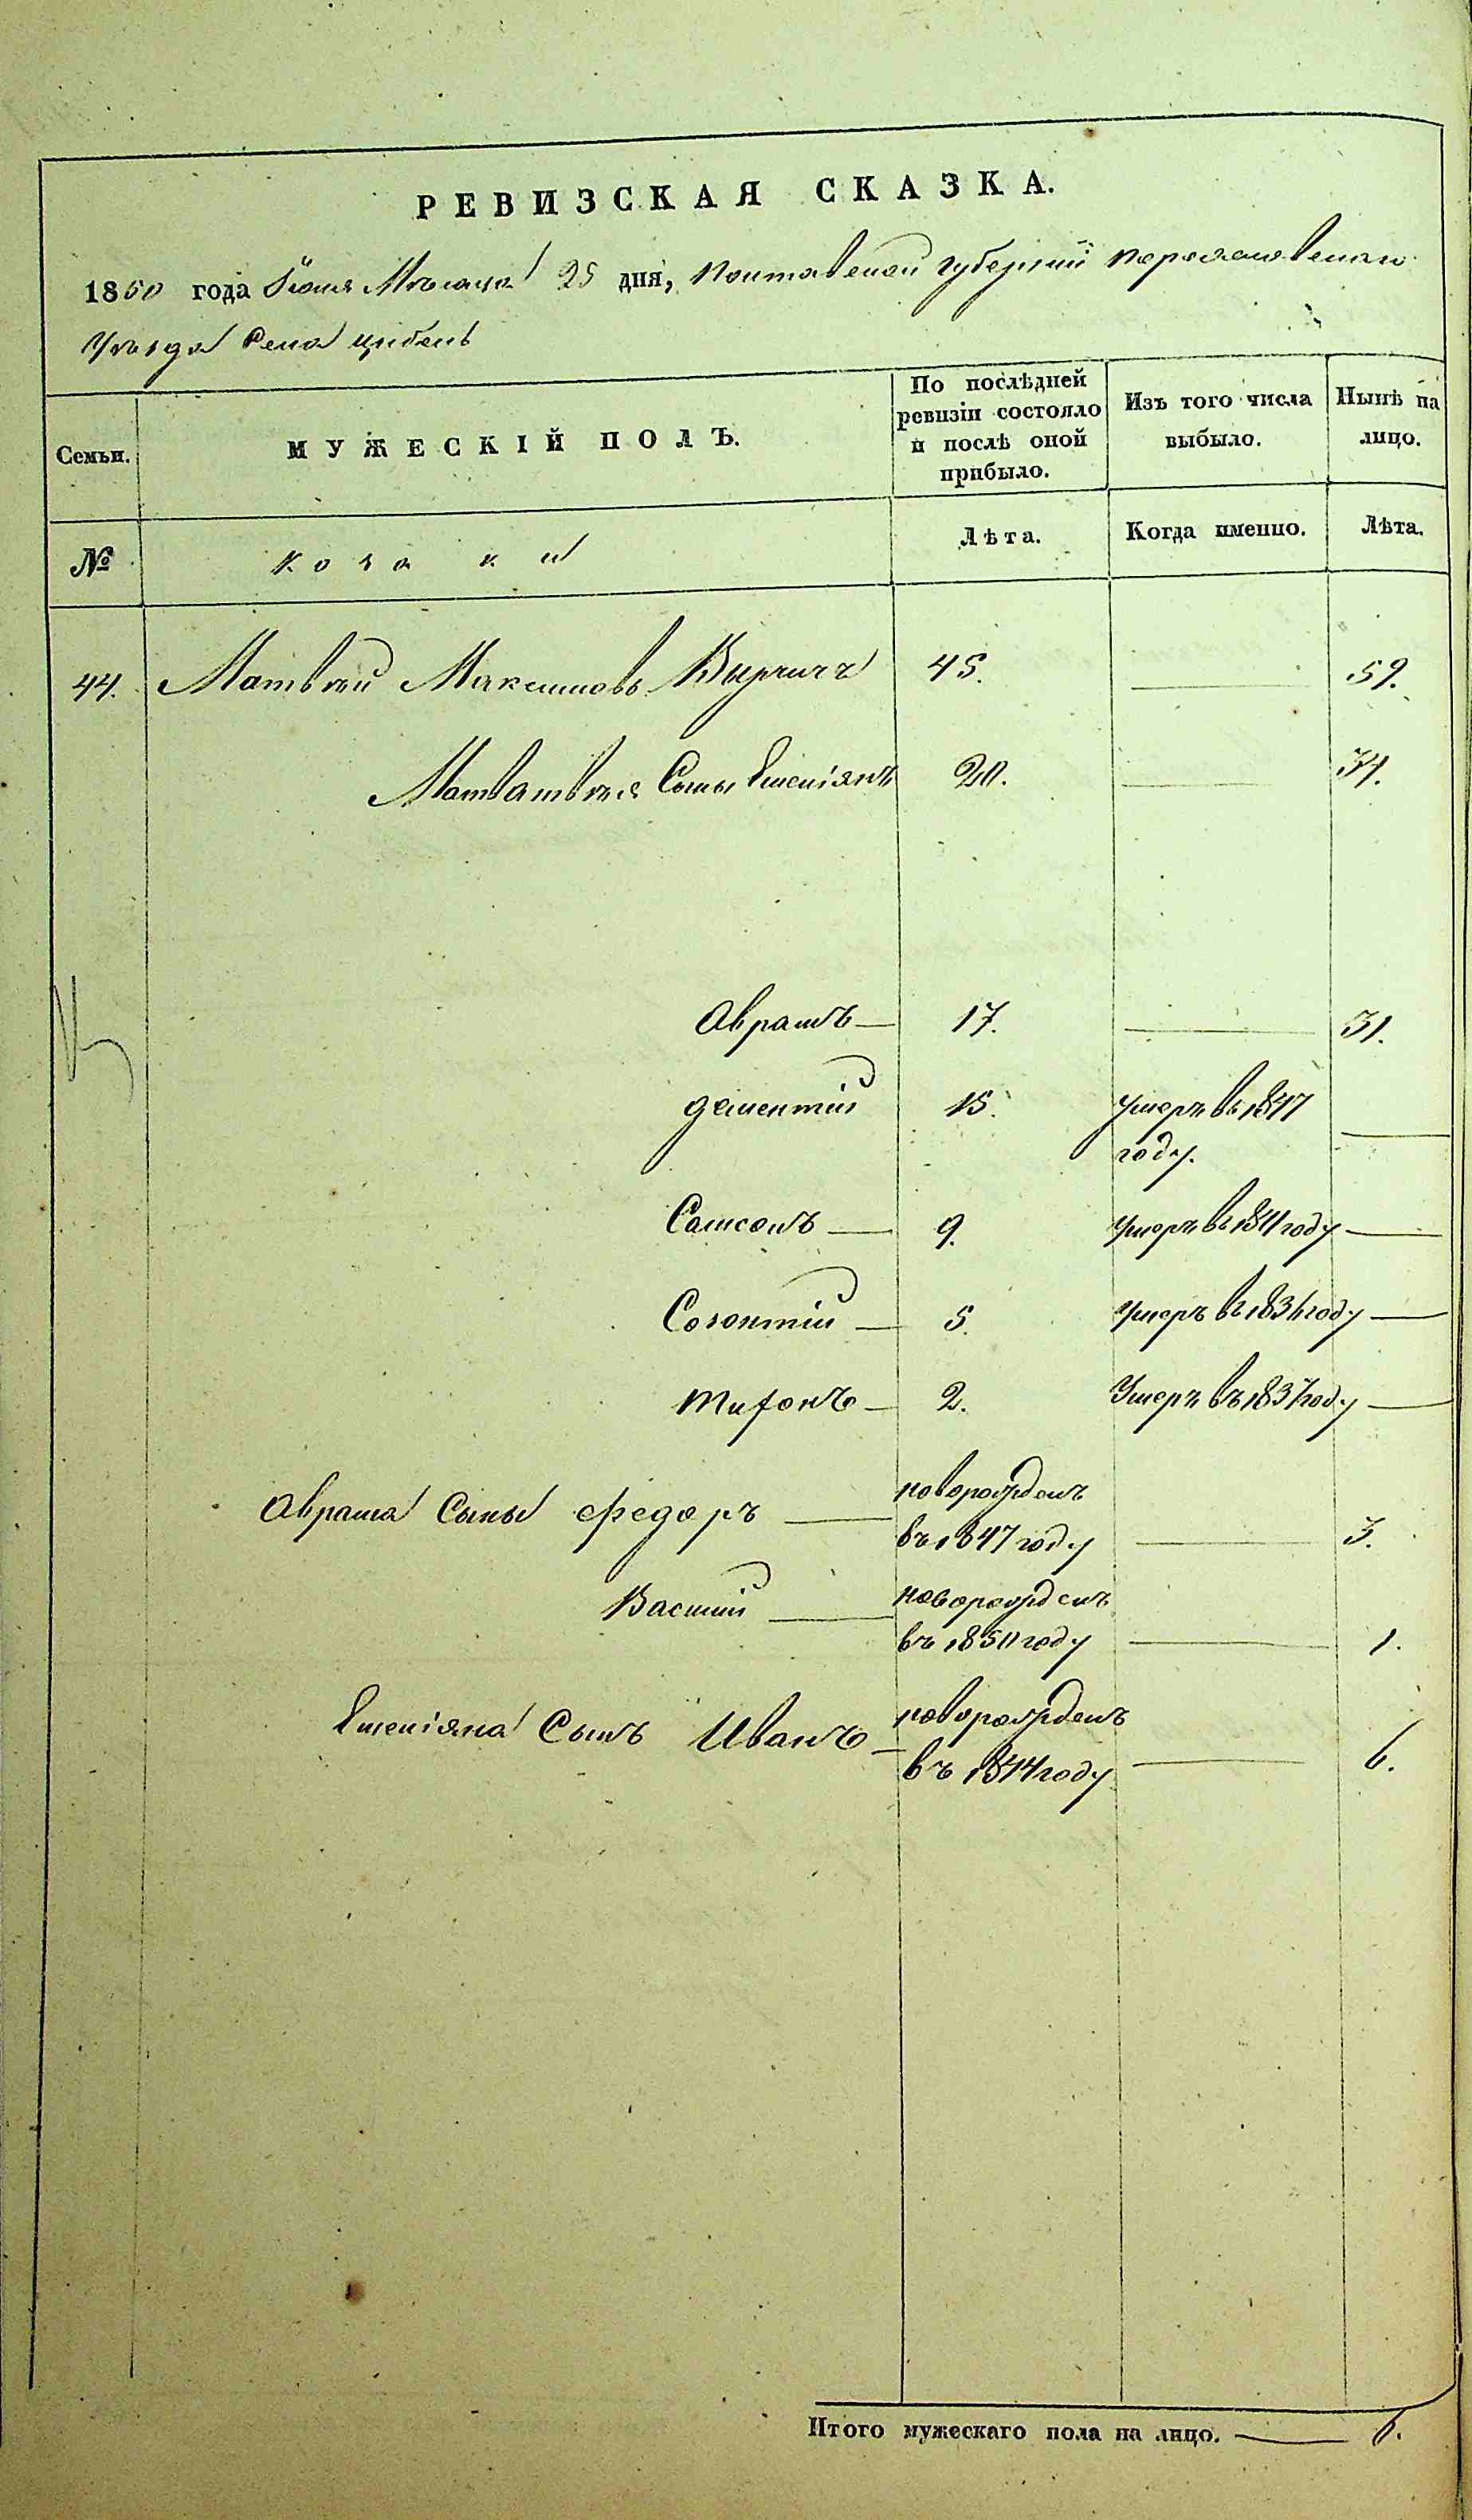 РЕВИЗСКАЯ СКАЗКА.
1850 года Юня Мѣсяца 25 дня, Полтавской губерніи Переяславскаго
Уѣзда Села Цибель
Семьи.
МУЖЕСКІЙ ПОЛЪ.
По послѣдней ревизіи состояло и послѣ оной прибыло.
Изъ того числа выбыло.
Нынѣ на лицо.
№
козаки
Лѣта.
Когда именно.
Лѣта.
44. Матвѣй Максимовъ 45. 59.
Матвѣя Сыны Емеліянъ 20. 34.
Аврамъ 17. 31.
Дементій 15. Умеръ въ 1847
году.
Самсонъ 9. Умеръ въ 1841 году
Созонтій 5. Умеръ въ 1836 году
Тифонъ 2. Умеръ въ 1837 году
новорожденъ
Аврама Сыны Федоръ въ 1847 году 3.
новорожденъ
Василій въ 1850 году 1.
новорожденъ
Емеліяна Сынъ Иванъ въ 1844 году 6.
Итого мужескаго пола на лицо. 6.